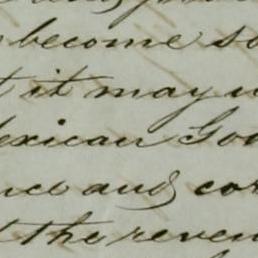 become so
it may
exican Go
nce and co
the reven